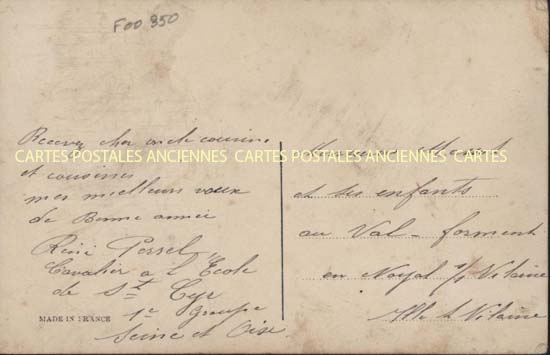 Foo 350
Recevez cher oncle cousins
CARTES POSTALES ANCIENNES CARTES POSTALES ANCIENNES CARTES
et cousines
mes meilleurs vœux
de Bonne année
René
Cavalier a l'École
de St Cyr
1e Groupe
Seine et Oise
MADE IN FRANCE
Monsieur
et ses enfants
au Val-forment
en Noyal s/s Vilaine
Ille & Vilaine